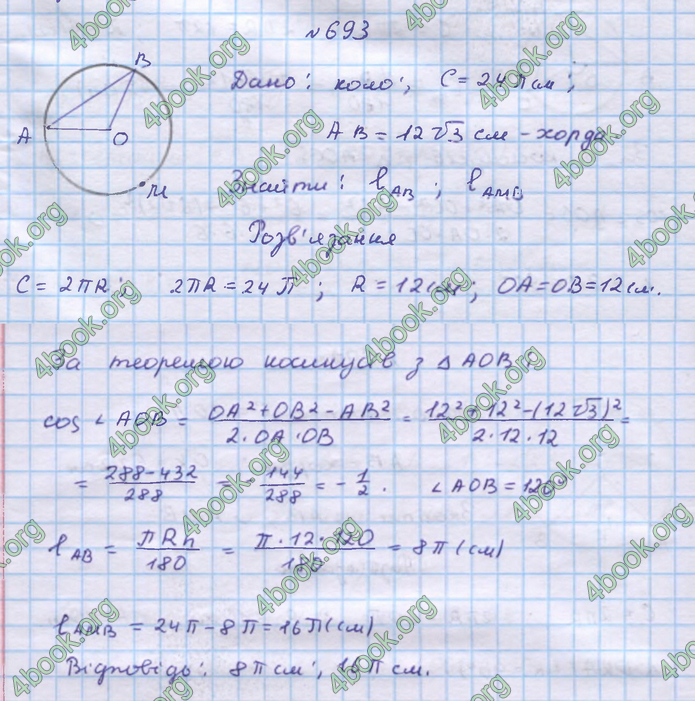 №693
B
Дано: коло, C = 24π см;
A
O
AB = 12√3 см - хорда
M
Знайти: ℓAB; ℓAMB
Розв'язання
C = 2πR; 2πR = 24π; R = 12 см; OA=OB=12 см.
За теоремою косинусів з △AOB:
cos ∠AOB = (OA²+OB²-AB²)/(2·OA·OB) = (12²+12²-(12√3)²)/(2·12·12) =
= (288-432)/288 = -144/288 = -1/2. ∠AOB = 120°
ℓAB = πRn/180 = π·12·120/180 = 8π (см)
ℓAMB = 24π - 8π = 16π (см)
Відповідь: 8π см; 16π см.
4book.org